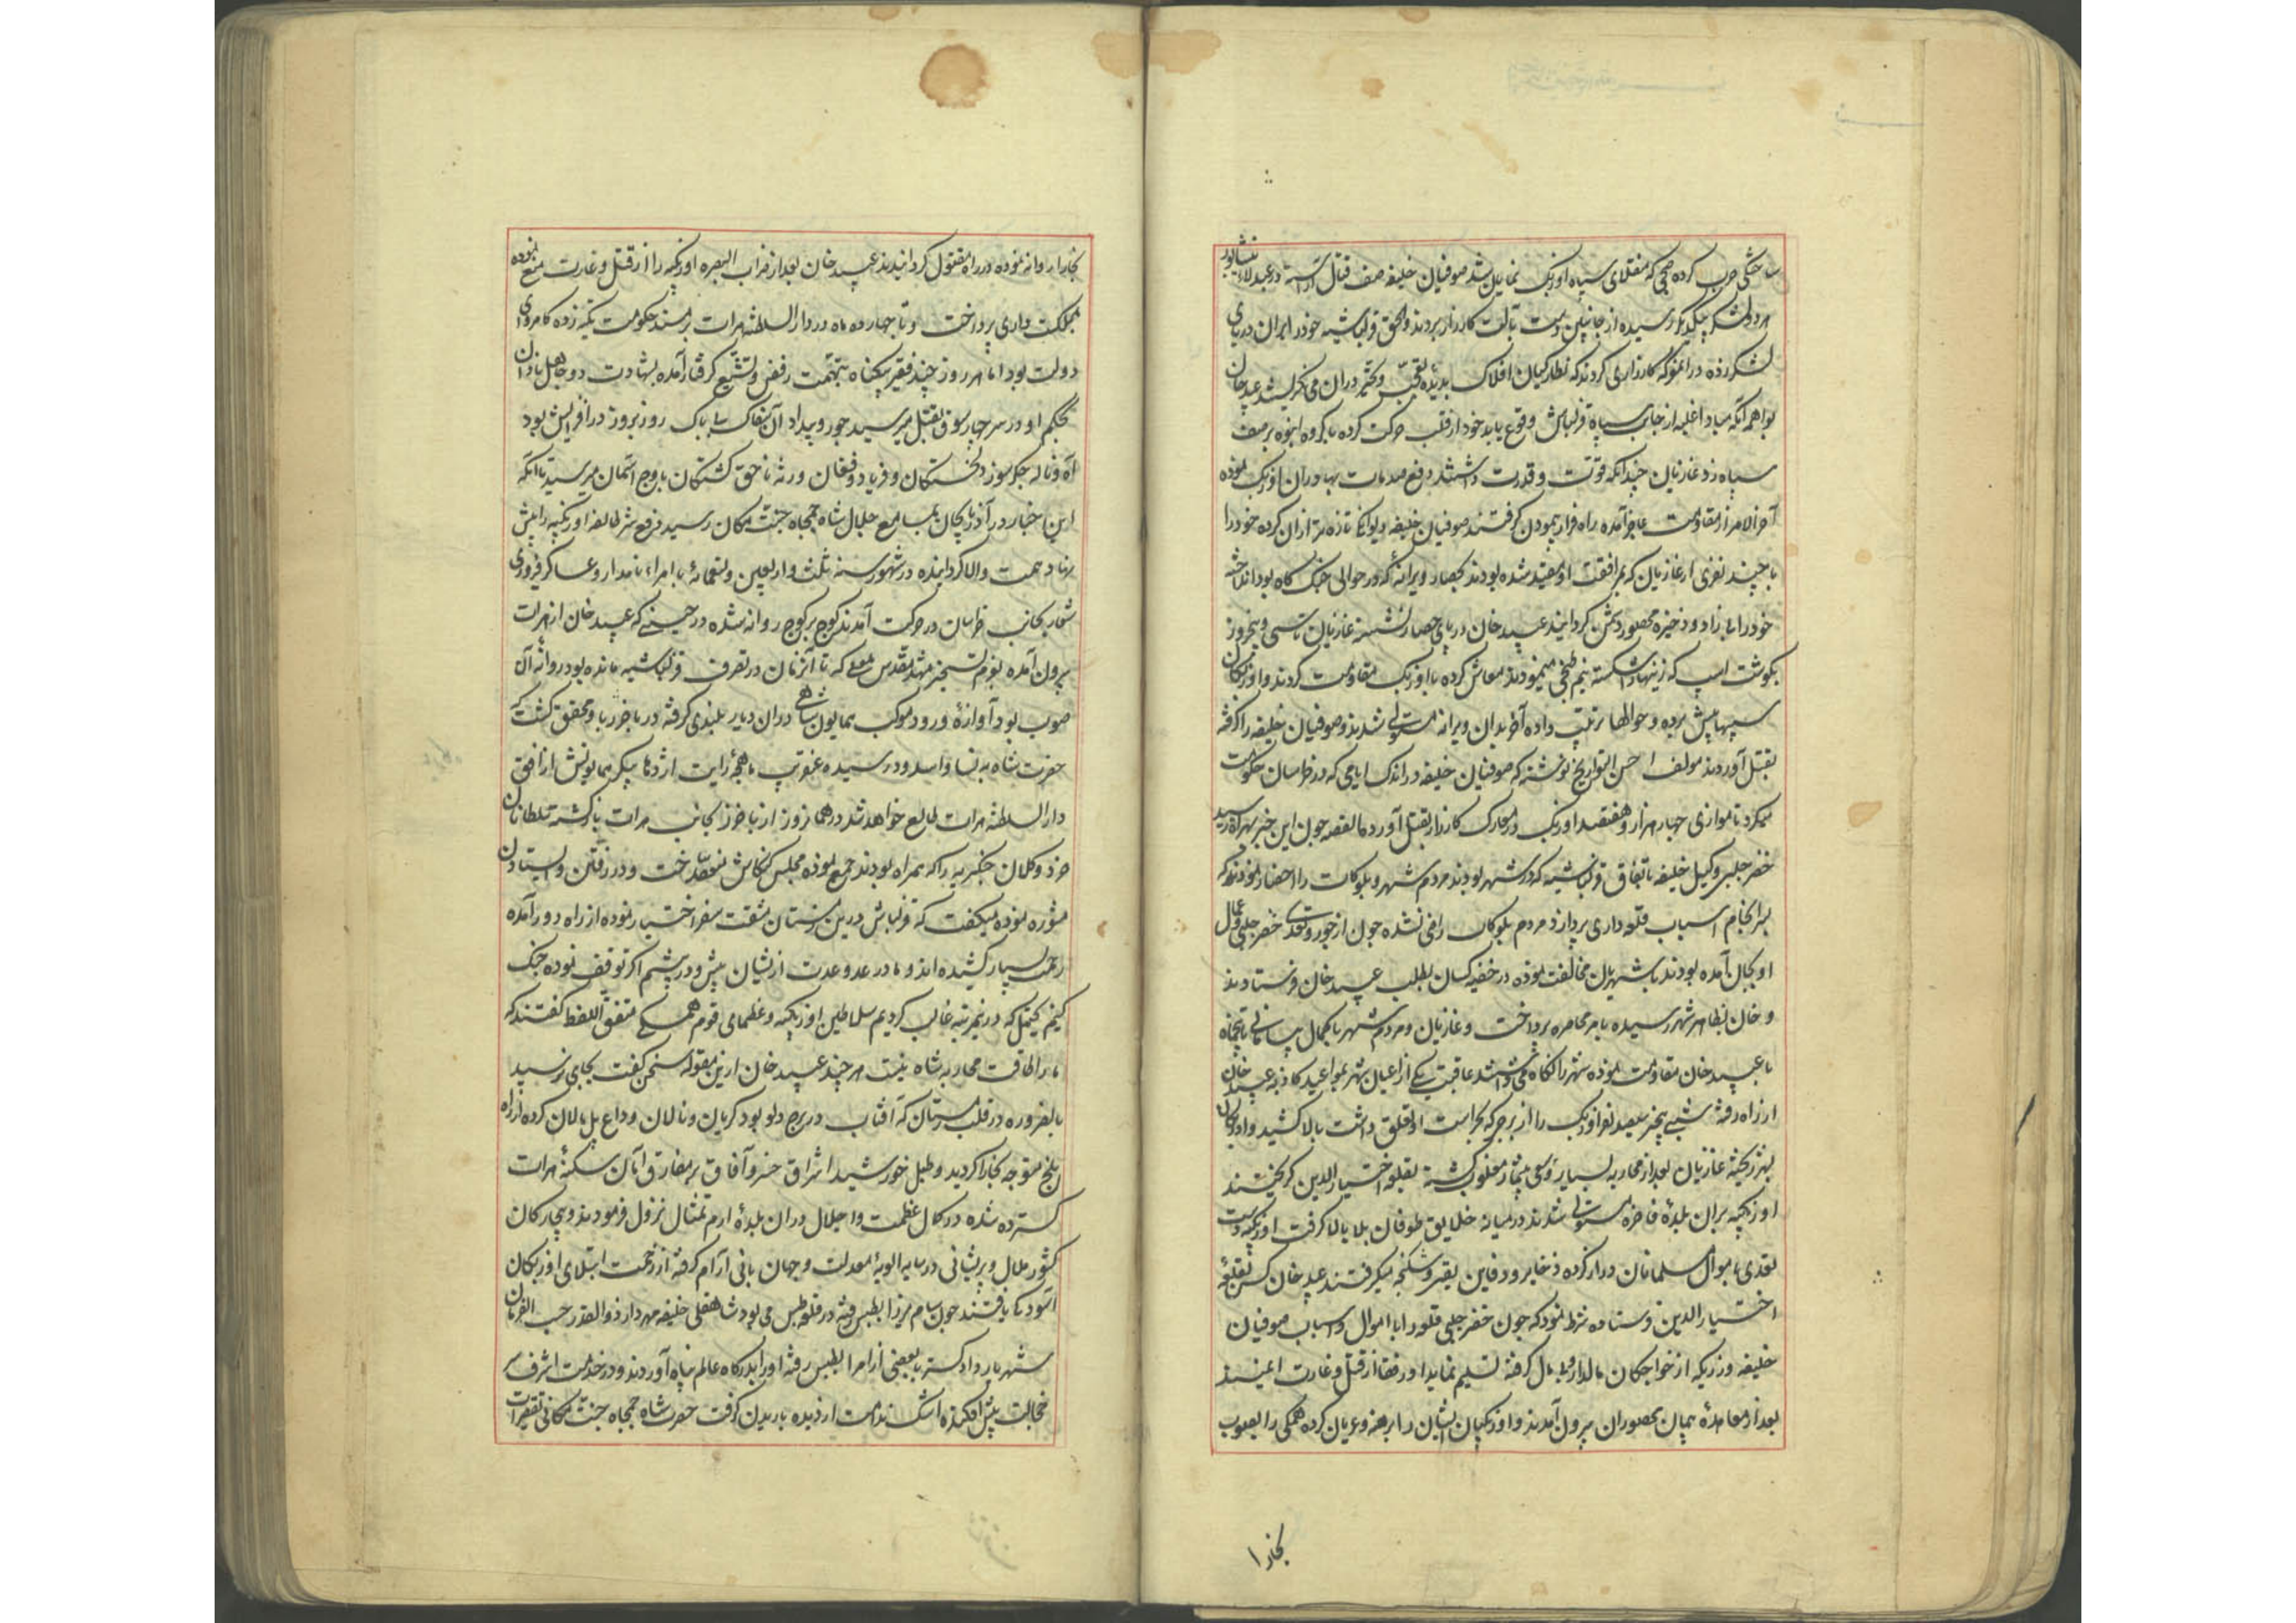 حرب کرده صبحی که منقلای سپاه اوزبک نمایان شد صوفیان خلیفه صف قتال آراسته در عبدلاباد نیشابور
هر دو لشکر بیکدیگر رسیده از جانبین دست بآلت کارزار بردند والحق قزلباشیه خود را بر آن دریای
لشکر زده در آن معرکه کارزاری کردند که نظارکیان افلاک بدیده تعجب و تحیر در آن می نکریستند عبید خان
بواهمه آنکه مبادا غلبه از جانب سپاه قزلباش وقوع یابد خود از قلب حرکت کرده با کروه انبوه بر صف
سپاه زد غازیان چندانکه قوت و قدرت داشتند دفع صدمات بهادران اوزبک نموده
آخر الامر از مقاومت عاجز آمده راه فرار پیمودن کرفتند صوفیان خلیفه کرده خود را
با چند نفری از غازیان که بمرافقت او مقید شده بودند بحصار ویرانه که در حوالی جنک کاه بود انداخته
خود را بی زاد و ذخیره محصور دشمن کردانید عبید خان در پای حصار نشسته غازیان تا سی و پنج روز
بکوشت اسپ که زینها شکسته نیم طبخی مینمودند معاش کرده با اوزبک مقاومت کردند و اوزبکان
سیبها پیش برده و حوالها ترتیب داده آخر بدان ویرانه مستولی شدند و صوفیان خلیفه را کرفته
بقتل آوردند مولف احسن التواریخ نوشته که صوفیان خلیفه در اندک ایامی که در خراسان حکومت
میکرد تا موازی چهار هزار و هفتصد اوزبک در معارک کارزار بقتل آورد القصه چون این خبر بهراة رسید
خضر چلبی وکیل خلیفه باتفاق قزلباشیه که در شهر بودند مردم شهر و بلوکات را احضار نمودند که
بسرانجام اسباب قلعه داری پردازند مردم بلوکات راضی نشده چون از جور و تعدی خضر چلبی و عمال
او بجان آمده بودند با شهریان مخالفت نموده در خفیه کسان بطلب عبید خان فرستادند
و خان بظاهر شهر رسیده بامر محاصره پرداخت و غازیان و مردم شهر با کمال بی سامانی تا پنجماه
با عبید خان مقاومت نموده شهر را نکاه می داشتند عاقبت یکی از اعیان شهر بمواعید کاذبه عبید خان
از راه رفته شبی سیصد نفر اوزبک را از برجی که بحراست او تعلق داشت بالا کشید و اوزبکان
بشهر ریخته غازیان بعد از محاربه بسیار و سعی بیشمار مغلوب کشته بقلعه اختیار الدین کریختند
اوزبکیه بر آن بلده فاخره مستولی شدند در میانه خلایق طوفان بلا بالا کرفت اوزبکیه دست
تعدی باموال مسلمانان دراز کرده ذخایر و دفاین بقهر و شکنجه میکرفتند عبید خان کس بقلعه
اختیار الدین فرستاده شرط نمود که چون خضر چلبی قلعه را با اموال و اسباب صوفیان
خلیفه و زری که از خواجکان مالدار کرفته تسلیم نماید او و رفقا از قتل و غارت ایمنند
بعد از معاهده و پیمان محصوران بیرون آمدند و اوزبکیان ایشان را برهنه و عریان کرده همکی را بصوب
بخارا
بخارا روانه نموده در راه مقتول کردانیدند عبید خان بعد از خراب البصره اوزبکیه را از قتل و غارت منع نموده
بمملکت داری پرداخت و تا چهارده ماه در دار السلطنه هرات بر مسند حکومت تکیه زده کامروای
دولت بود اما هر روز چند فقیر بیکناه بتهمت رفض و تشیع کرفتار آمده بشهادت دو جاهل نادان
بحکم او در سر چهارسوق بقتل میرسید جور و بیداد آن سفاک بی باک روز بروز در افزایش بود
آه و ناله جکرسوز دلخستکان و فریاد و فغان ورثه ناحق کشتکان باوج آسمان میرسید تا آنکه
این اخبار در آذربایجان بمسامع جلال شاه جمجاه جنت مکان رسید دفع شر طایفه اوزبکیه را پیش
نهاد همت والا کردانیده در شهور سنه ثلث و اربعین و تسعمائة با امراء نامدار و عساکر فیروزی
شعار بجانب خراسان در حرکت آمدند کوچ بر کوچ روانه شده در حینی که عبید خان از هرات
بیرون آمده بعزم تسخیر مشهد مقدس معلی که تا آن زمان در تصرف قزلباشیه مانده بود روانه آن
صوب بود آوازه ورود موکب همایون شاهی در آن دیار بلندی کرفته در باخرز باو محقق کشت که
حضرت شاه به نسا و ابیورد رسیده عنقریب ماهچه رایت اژدها پیکر همایونش از افق
دار السلطنه هرات طالع خواهد شد در همان روز از باخرز بجانب هرات بازکشته سلطانان
خرد و کلان چنکیزیه را که همراه بودند جمع نموده مجلس کنکاش منعقد ساخت و در رفتن و ایستادن
مشوره نموده میکفت که قزلباش درین زمستان مشقت سفر اختیار نموده از راه دور آمده
زحمت بسیار کشیده اند و ما در عدد و عدت از ایشان بیش و در پیشیم اکر توقف نموده جنک
کنیم یحتمل که درین مرتبه غالب کردیم سلاطین اوزبکیه و عظمای قوم همکی متفق اللفظ کفتند که
ما را طاقت محاربه شاه نیست هر چند عبید خان ازین مقوله سخن کفت بجایی نرسید
بالضروره در قلب زمستان که آفتاب در برج دلو بود کریان و نالان وداع پل مالان کرده از راه
بلخ متوجه بخارا کردید و طبل خورشید اشراق خسرو آفاق بر مفارق اهالی سکنه هرات
کسترده شده در کمال عظمت و اجلال در آن بلده ارم تمثال نزول فرمودند و بیچارکان
کشور ملال و پریشانی در سایه الویه معدلت و جهان بانی آرام کرفته از زحمت استیلای اوزبکان
آسودکی یافتند چون سام میرزا بطبس رفته در قلعه طبس می بود شاهقلی خلیفه مهردار ذوالقدر حسب الفرمان
شهریار دادکستر با بعضی از امرا بطبس رفته او را بدرکاه عالم پناه آوردند و در خدمت اشرف سر
خجالت پیش افکنده اشک ندامت از دیده باریدن کرفت حضرت شاه جمجاه جنت مکانی تقصیرات